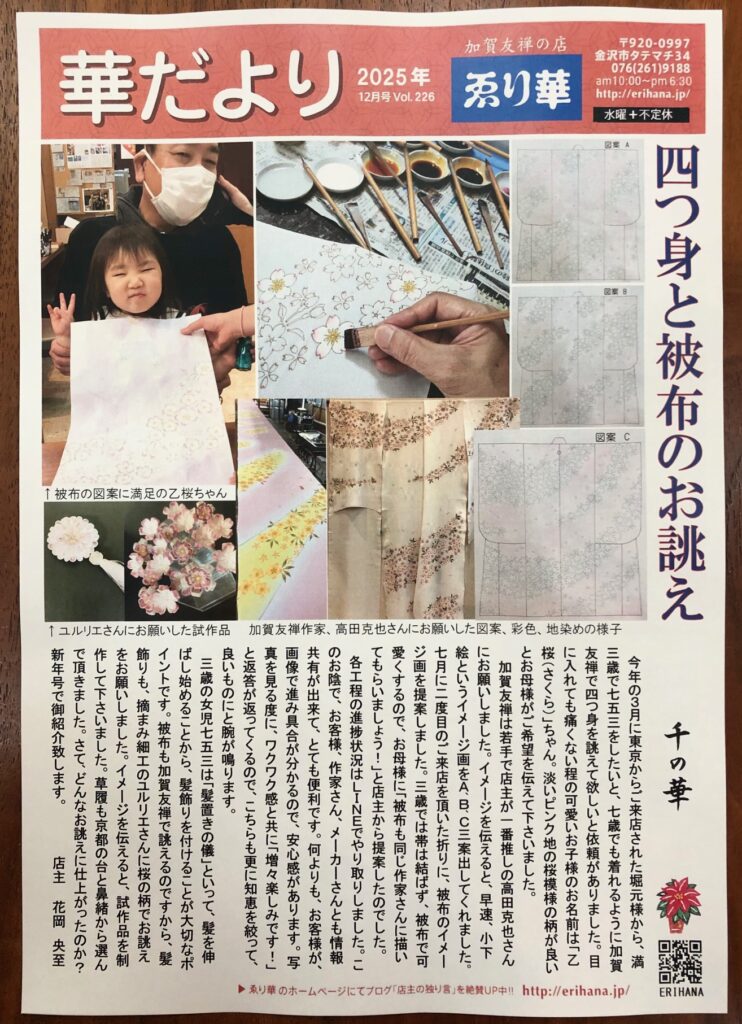 華だより
2025年
12月号 Vol.226
加賀友禅の店
ゑり華
〒920-0997
金沢市タテマチ34
076(261)9188
am10:00~pm6:30
http://erihana.jp/
水曜+不定休
四つ身と被布のお誂え
図案 A
図案 B
図案 C
↑被布の図案に満足の乙桜ちゃん
↑ユルリエさんにお願いした試作品
加賀友禅作家、高田克也さんにお願いした図案、彩色、地染めの様子
千の華
今年の3月に東京からご来店された堀元様から、満
三歳で七五三をしたいと、七歳でも着れるように加賀
友禅で四つ身を誂えて欲しいと依頼がありました。目
に入れても痛くない程の可愛いお子様のお名前は「乙
桜(さくら)」ちゃん。淡いピンク地の桜模様の柄が良い
とお母様がご希望を伝えて下さいました。
加賀友禅は若手で店主が一番推しの高田克也さん
にお願いしました。イメージを伝えると、早速、小下
絵というイメージ画をA、B、C三案出してくれました。
七月に二度目のご来店を頂いた折りに、被布のイメー
ジ画を提案しました。三歳では帯は結ばず、被布で可
愛くするので、お母様に「被布も同じ作家さんに描い
てもらいましょう!」と店主から提案したのでした。
各工程の進捗状況はLINEでやり取りしました。こ
のお陰で、お客様、作家さん、メーカーさんとも情報
共有が出来て、とても便利です。何よりも、お客様が、
画像で進み具合が分かるので、安心感があります。写
真を見る度に、ワクワク感と共に「増々楽しみです!」
と返答が返ってくるので、こちらも更に知恵を絞って、
良いものにと腕が鳴ります。
三歳の女児七五三は「髪置きの儀」といって、髪を伸
ばし始めることから、髪飾りを付けることが大切なポ
イントです。被布も加賀友禅で誂えるのですから、髪
飾りも、摘まみ細工のユルリエさんに桜の柄でお誂え
をお願いしました。イメージを伝えると、試作品を制
作して下さいました。草履も京都の台と鼻緒から選ん
で頂きました。さて、どんなお誂えに仕上がったのか?
新年号で御紹介致します。
店主 花岡 央至
ERIHANA
▶ゑり華のホームページにてブログ「店主の独り言」を絶賛UP中!! http://erihana.jp/